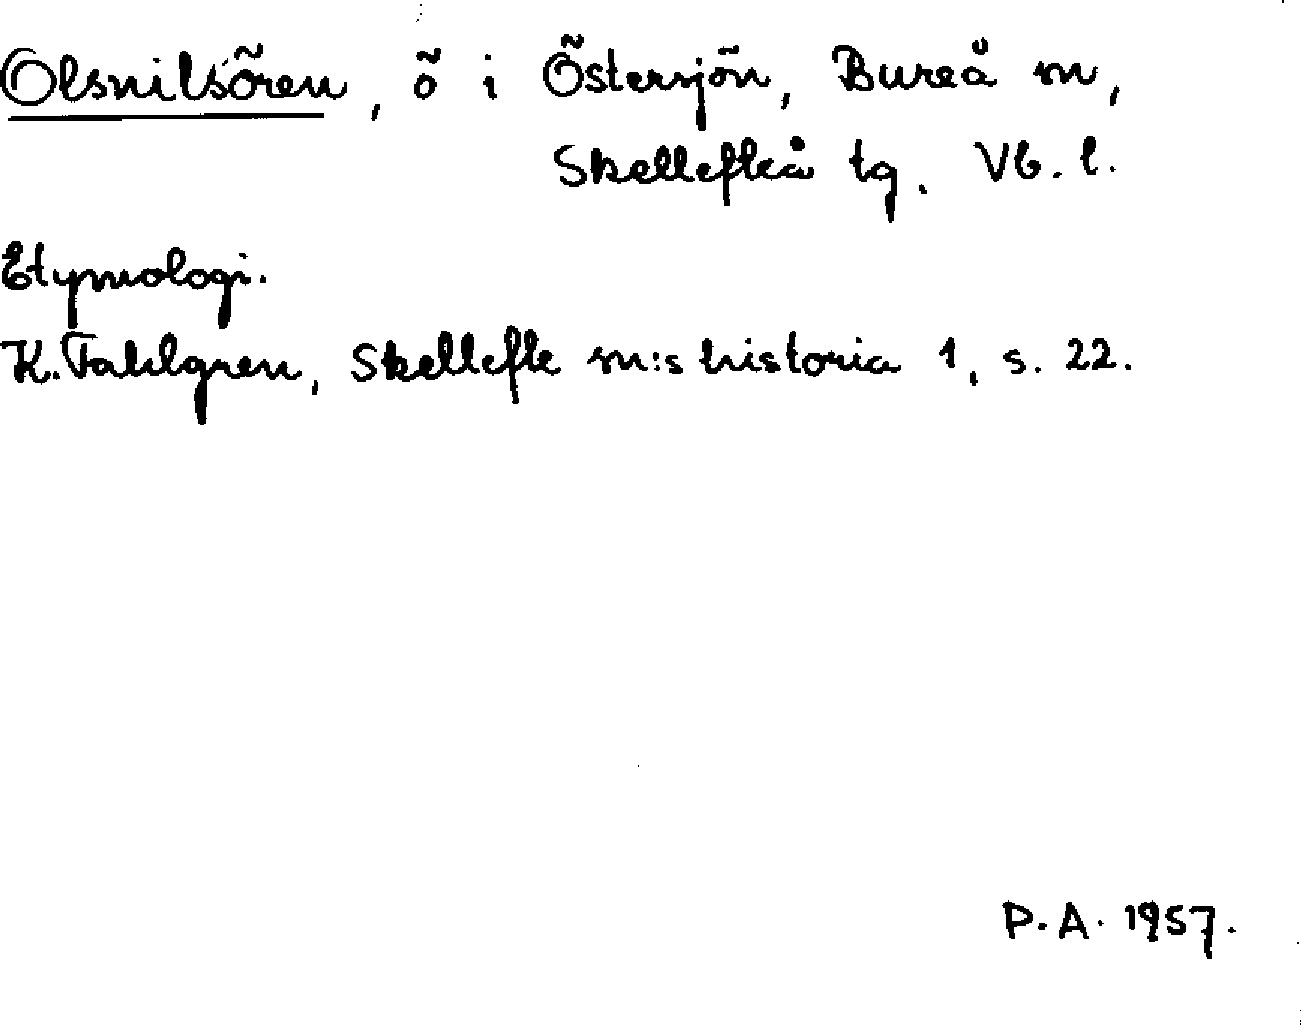 Olsnilsören, ö i Östersjön, Bureå sn,
Skellefteå tg. Vb. l.
Etymologi.
K. Fahlgren, Skellefte sn:s historia 1, s. 22.
P. A. 1957.